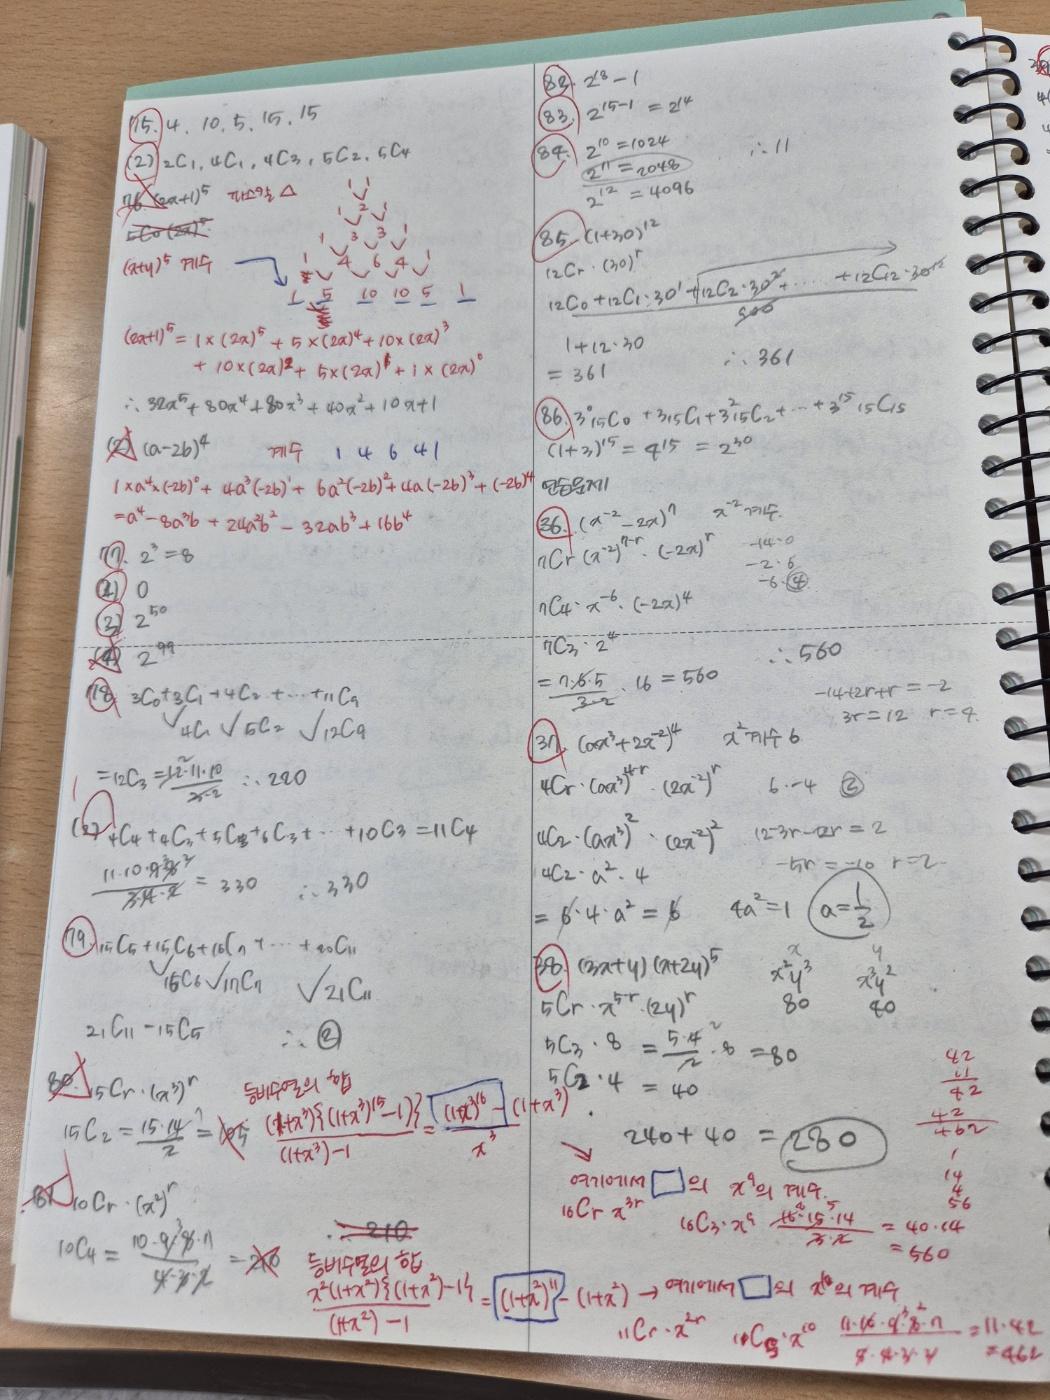 75. 4, 10, 5, 15, 15
(2) 2C1, 4C1, 4C3, 5C2, 5C4
76. (2x+1)^5 파스칼 △
5C0 (2x)^5
(x+y)^5 계수
1 1
1 2 1
1 3 3 1
1 4 6 4 1
1 5 10 10 5 1
(2x+1)^5 = 1×(2x)^5 + 5×(2x)^4 + 10×(2x)^3
+ 10×(2x)^2 + 5×(2x)^1 + 1×(2x)^0
∴ 32x^5 + 80x^4 + 80x^3 + 40x^2 + 10x + 1
(2) (a-2b)^4 계수 1 4 6 4 1
1×a^4×(-2b)^0 + 4a^3(-2b)^1 + 6a^2(-2b)^2 + 4a(-2b)^3 + (-2b)^4
= a^4 - 8a^3b + 24a^2b^2 - 32ab^3 + 16b^4
77. 2^3 = 8
(2) 0
(3) 2^50
(4) 2^99
78. 3C0 + 3C1 + 4C2 + … + 11C9
4C1 5C2 12C9
= 12C3 = 12·11·10 / 3·2 ∴ 220
(2) 4C4 + 4C3 + 5C3 + 6C3 + … + 10C3 = 11C4
11·10·9·8 / 3·4·2 = 330 ∴ 330
79. 15C5 + 15C6 + 16C7 + … + 20C11
16C6 17C7 21C11
21C11 - 15C5 ∴ ②
80. 15Cr·(x^3)^r 등비수열의 합
15C2 = 15·14 / 2 = 105 (1+x^3){(1+x^3)^15 - 1} / (1+x^3) - 1 = (1+x^3)^16 - (1+x^3) / x^3
여기에서 □의 x^9의 계수
16Cr x^3r 16C3·x^9 16·15·14 / 3·2 = 40·14
= 560
81. 10Cr·(x^2)^r
10C4 = 10·9·8·7 / 4·3·2 = 210
∴ 210
등비수열의 합
x^2(1+x^2){(1+x^2) - 1} / (1+x^2) - 1 = (1+x^2)^11 - (1+x^2) → 여기에서 □의 x^10의 계수
11Cr·x^2r 11C5·x^10 11·10·9·8·7 / 5·4·3·2 = 11·42
= 462
82. 2^18 - 1
83. 2^15-1 = 2^14
84. 2^10 = 1024 ∴ 11
2^11 = 2048
2^12 = 4096
85. (1+30)^12
12Cr·(30)^r
12C0 + 12C1·30^1 + 12C2·30^2 + … + 12C12·30^12
900
1+12·30
= 361 ∴ 361
86. 3^0 15C0 + 3 15C1 + 3^2 15C2 + … + 3^15 15C15
(1+3)^15 = 4^15 = 2^30
연습문제
36. (x^-2 - 2x)^7 x^-2 계수
7Cr (x^-2)^7-r·(-2x)^r -14·0
-2·6
-6·④
7C4·x^-6·(-2x)^4
7C3·2^4 ∴ 560
= 7·6·5 / 3·2 · 16 = 560
-14+2r+r = -2
3r = 12 r = 4
37. (ax^3 + 2x^-2)^4 x^2 계수 6
4Cr·(ax^3)^4-r·(2x^-2)^r 6·-4 ②
4C2·(ax^3)^2·(2x^-2)^2 12-3r-2r = 2
4C2·a^2·4 -5r = -10 r = 2
= 6·4·a^2 = 6 4a^2 = 1 a = 1/2
38. (3x+y)(x+2y)^5 x y
x^2y^3 x^3y^2
5Cr·x^5-r·(2y)^r 80 40
5C3·8 = 5·4 / 2 · 8 = 80
5C2·4 = 40
240+40 = 280
42
11
42
42
462
1
14
4
56